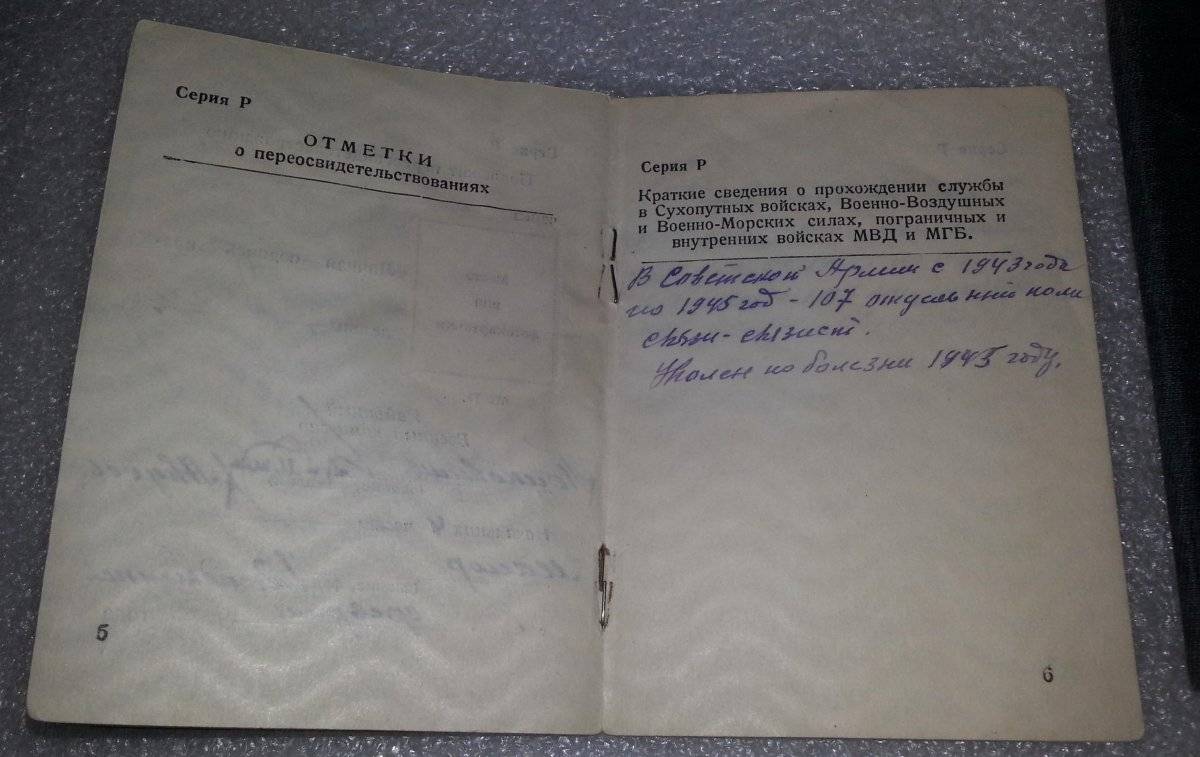 Серия Р
ОТМЕТКИ
о переосвидетельствованиях
5
Серия Р
Краткие сведения о прохождении службы
в Сухопутных войсках, Военно-Воздушных
и Военно-Морских силах, пограничных и
внутренних войсках МВД и МГБ.
В Советской Армии с 1943 года
по 1945 год - 107 отдельный полк
связи - связист.
Уволен по болезни 1945 году.
6